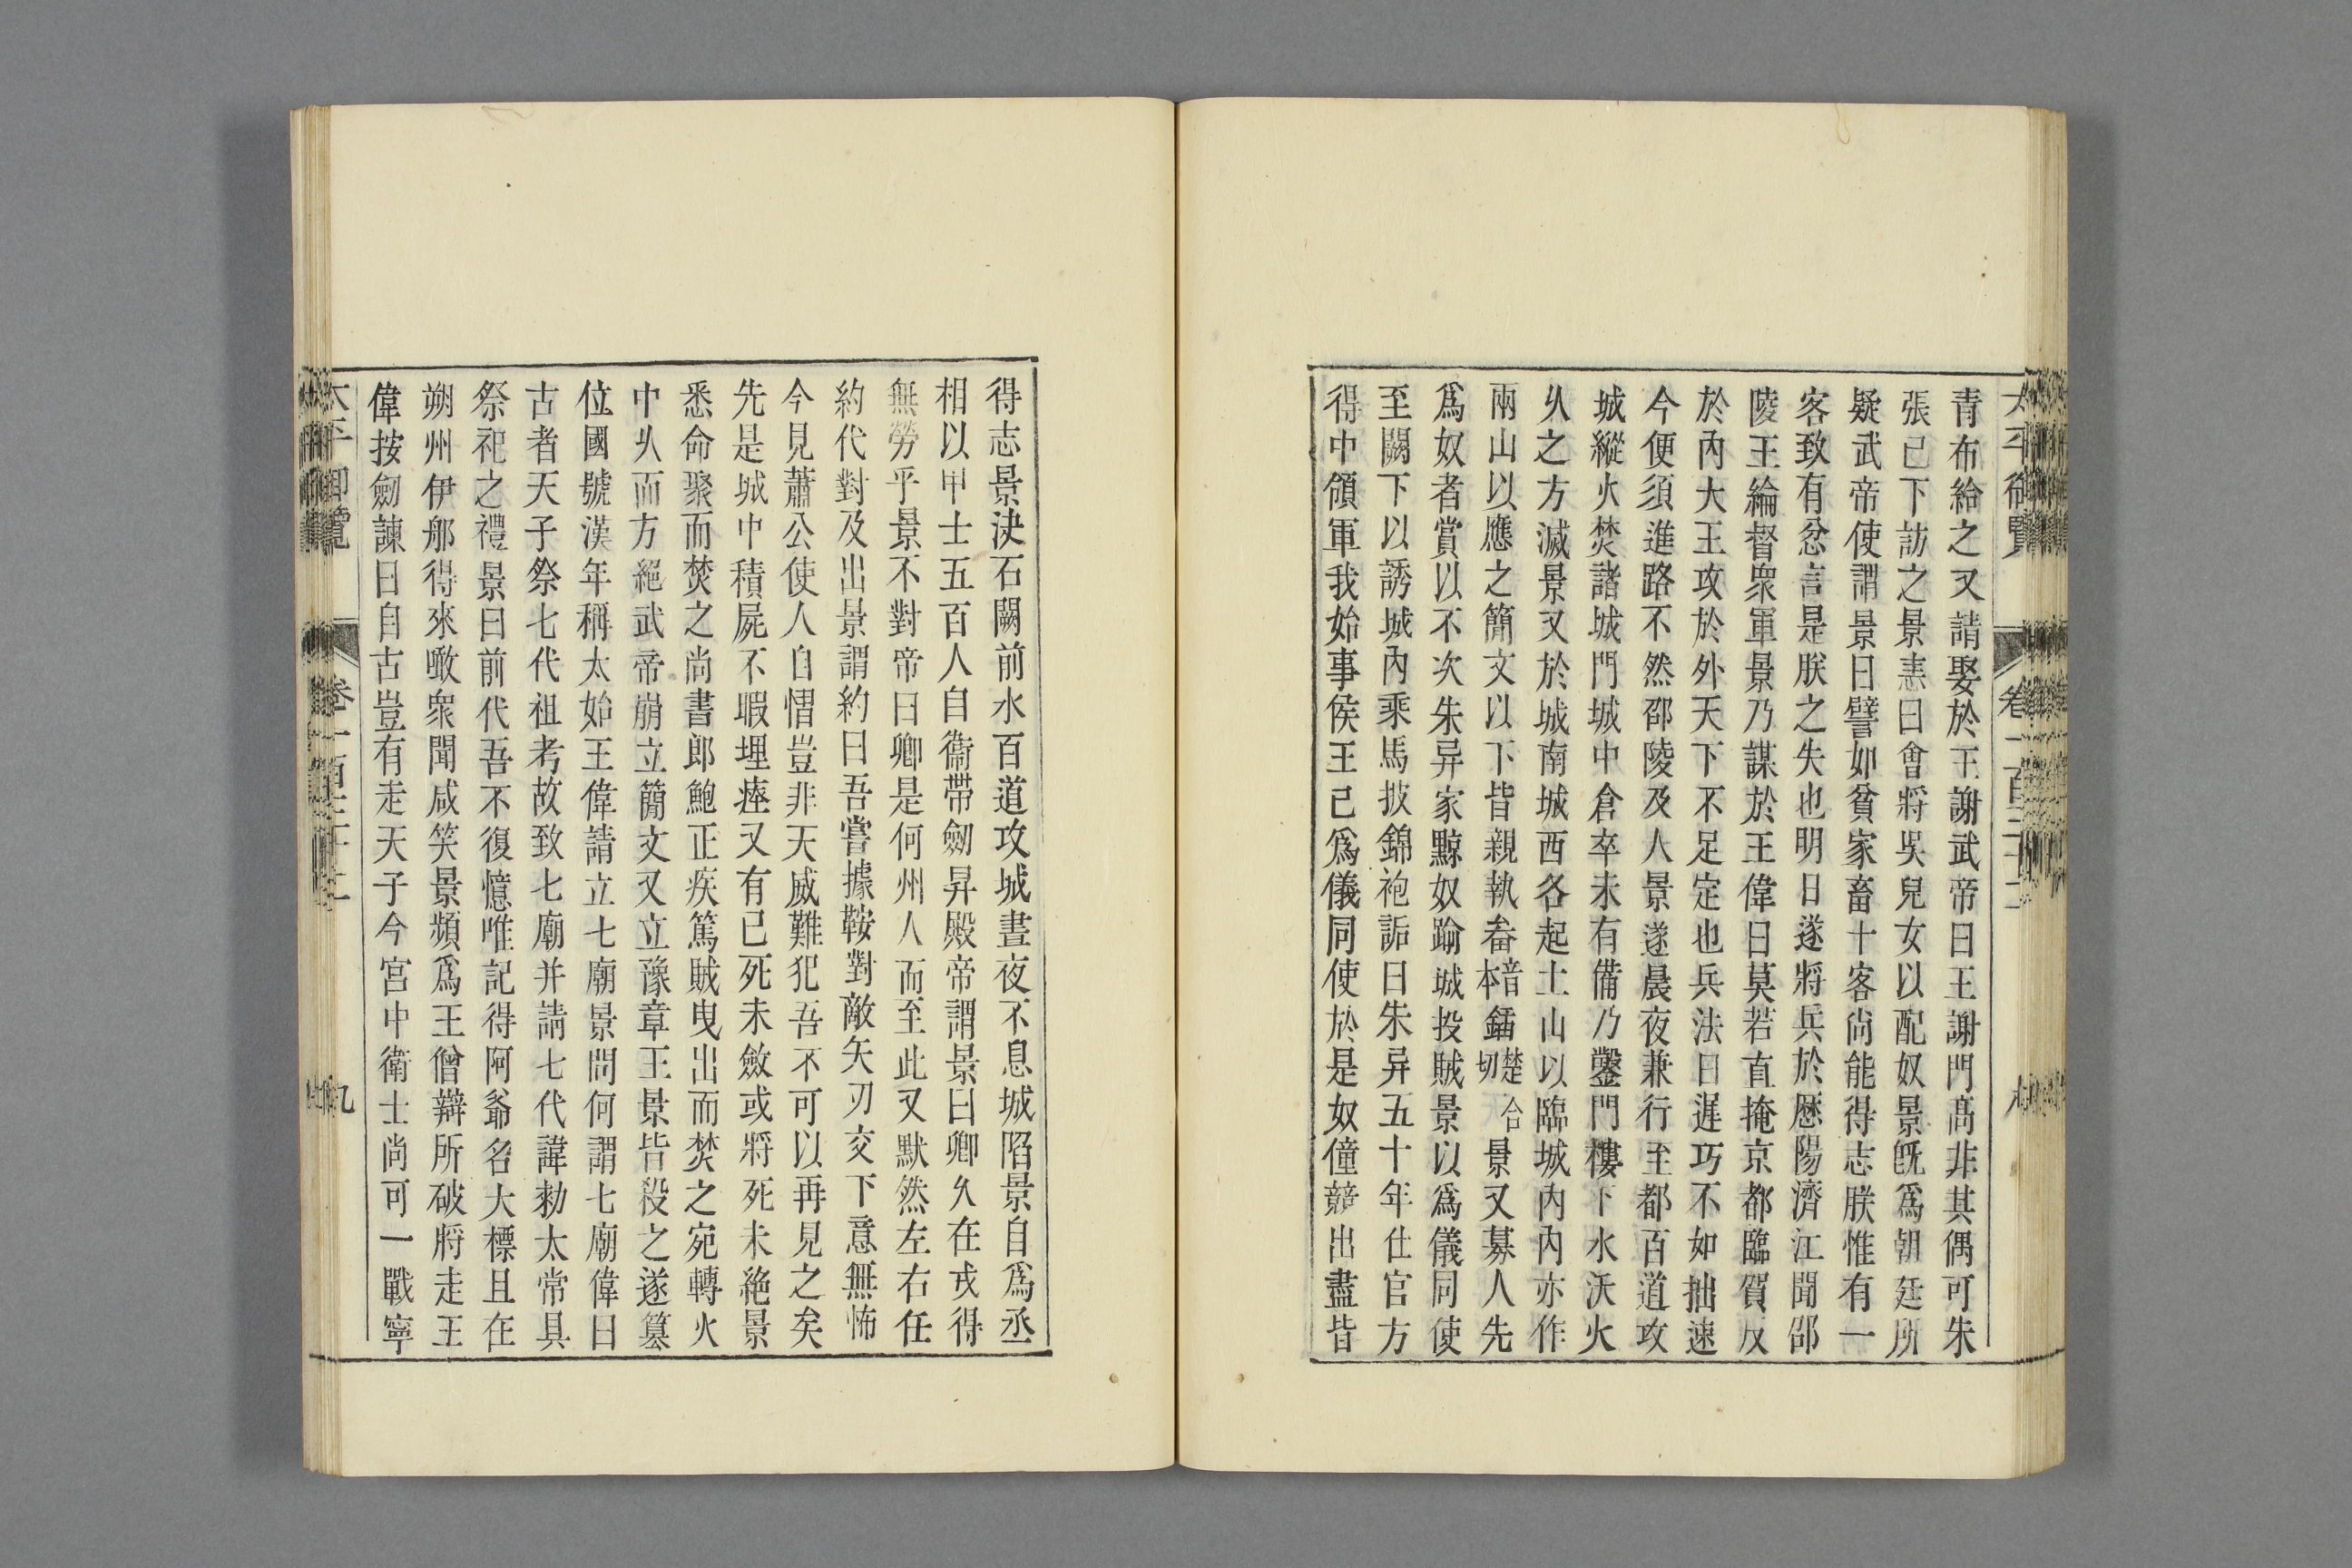 青布給之又請娶於王謝武帝曰王謝門高非其偶可朱
張已下訪之景恚曰會將吳兒女以配奴景旣爲朝廷所
疑武帝使謂景曰譬如貧家畜十客尚能得志朕惟有一
客致有忿言是朕之失也明日遂將兵於歷陽濟江聞邵
陵王綸督衆軍景乃謀於王偉曰莫若直掩京都臨賀反
於內大王攻於外天下不足定也兵法曰遲巧不如拙速
今便須進路不然邵陵及人景遂晨夜兼行至都百道攻
城縱火焚諸城門城中倉卒未有備乃鑿門樓下水沃火
久之方滅景又於城南城西各起土山以臨城內內亦作
兩山以應之簡文以下皆親執畚音本鍤楚合切景又募人先
爲奴者賞以不次朱异家黥奴踰城投賊景以爲儀同使
至闕下以誘城內乘馬披錦袍詬曰朱异五十年仕官方
得中領軍我始事侯王已爲儀同使於是奴僮競出盡皆
太平御覽 卷一百三十二
得志景決石闕前水百道攻城晝夜不息城陷景自爲丞
相以甲士五百人自衞帶劒昇殿帝謂景曰卿久在戎得
無勞乎景不對帝曰卿是何州人而至此又默然左右任
約代對及出景謂約曰吾嘗據鞍對敵矢刃交下意無怖
今見蕭公使人自慴豈非天威難犯吾不可以再見之矣
先是城中積屍不暇埋瘞又有已死未斂或將死未絕景
悉命聚而焚之尚書郎鮑正疾篤賊曳出而焚之宛轉火
中久而方絕武帝崩立簡文又立豫章王景皆殺之遂篡
位國號漢年稱太始王偉請立七廟景問何謂七廟偉曰
古者天子祭七代祖考故致七廟并請七代諱勑太常具
祭祀之禮景曰前代吾不復憶唯記得阿爺名大標且在
朔州伊郍得來噉衆聞咸笑景頻爲王僧辯所破將走王
偉按劒諫曰自古豈有走天子今宮中衛士尚可一戰寧
太平御覽 卷一百三十二 九